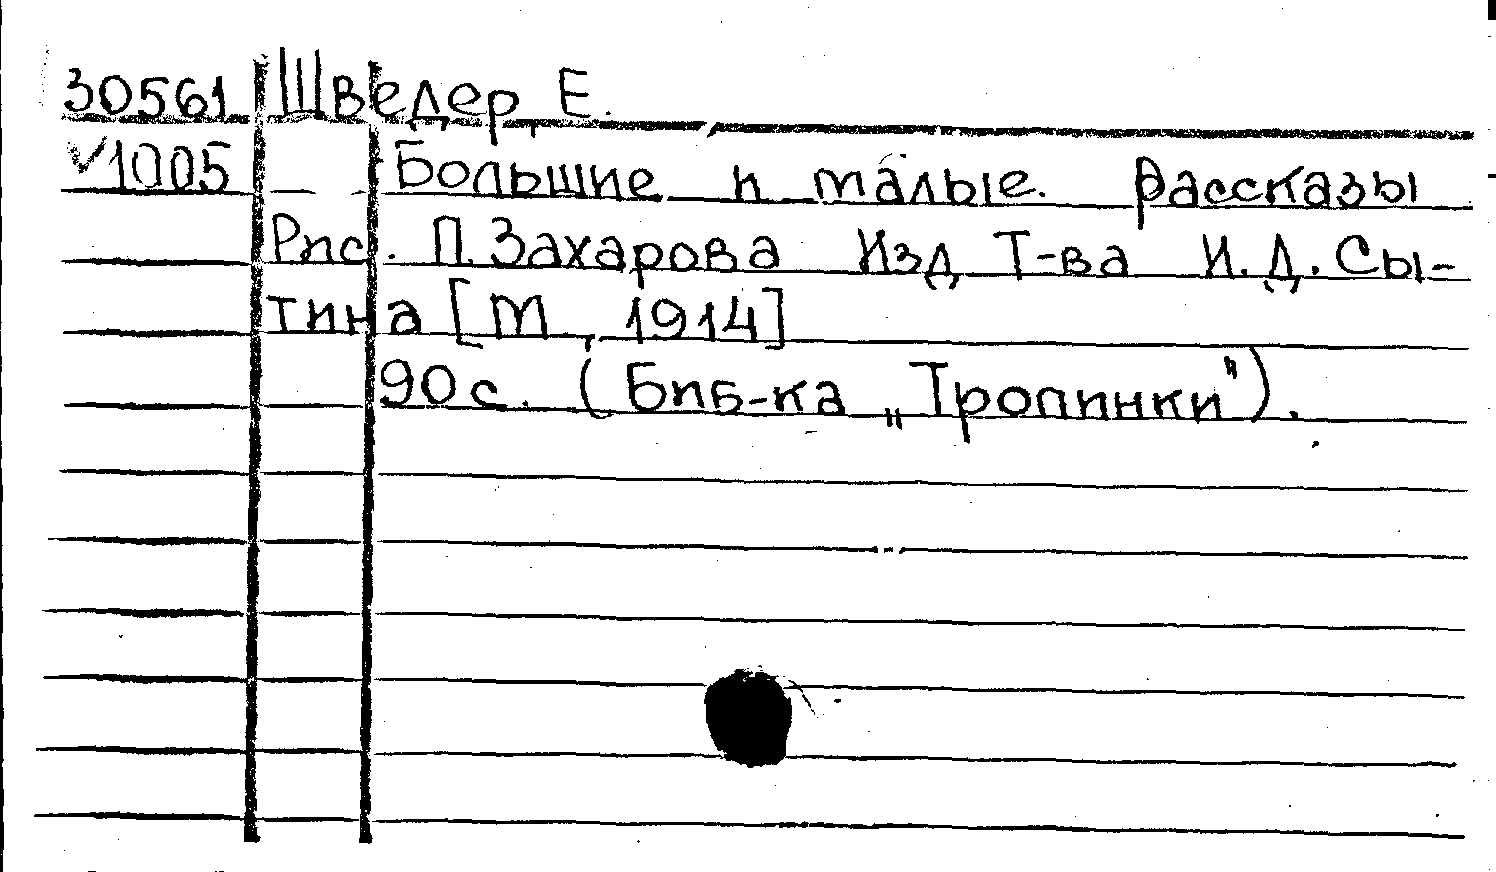 30561 Шведер, Е.
√1005 Большие и малые. Рассказы
Рис. П. Захарова Изд Т-ва И. Д. Сы-
тина [М, 1914]
90 с. (Биб-ка „Тропинки").